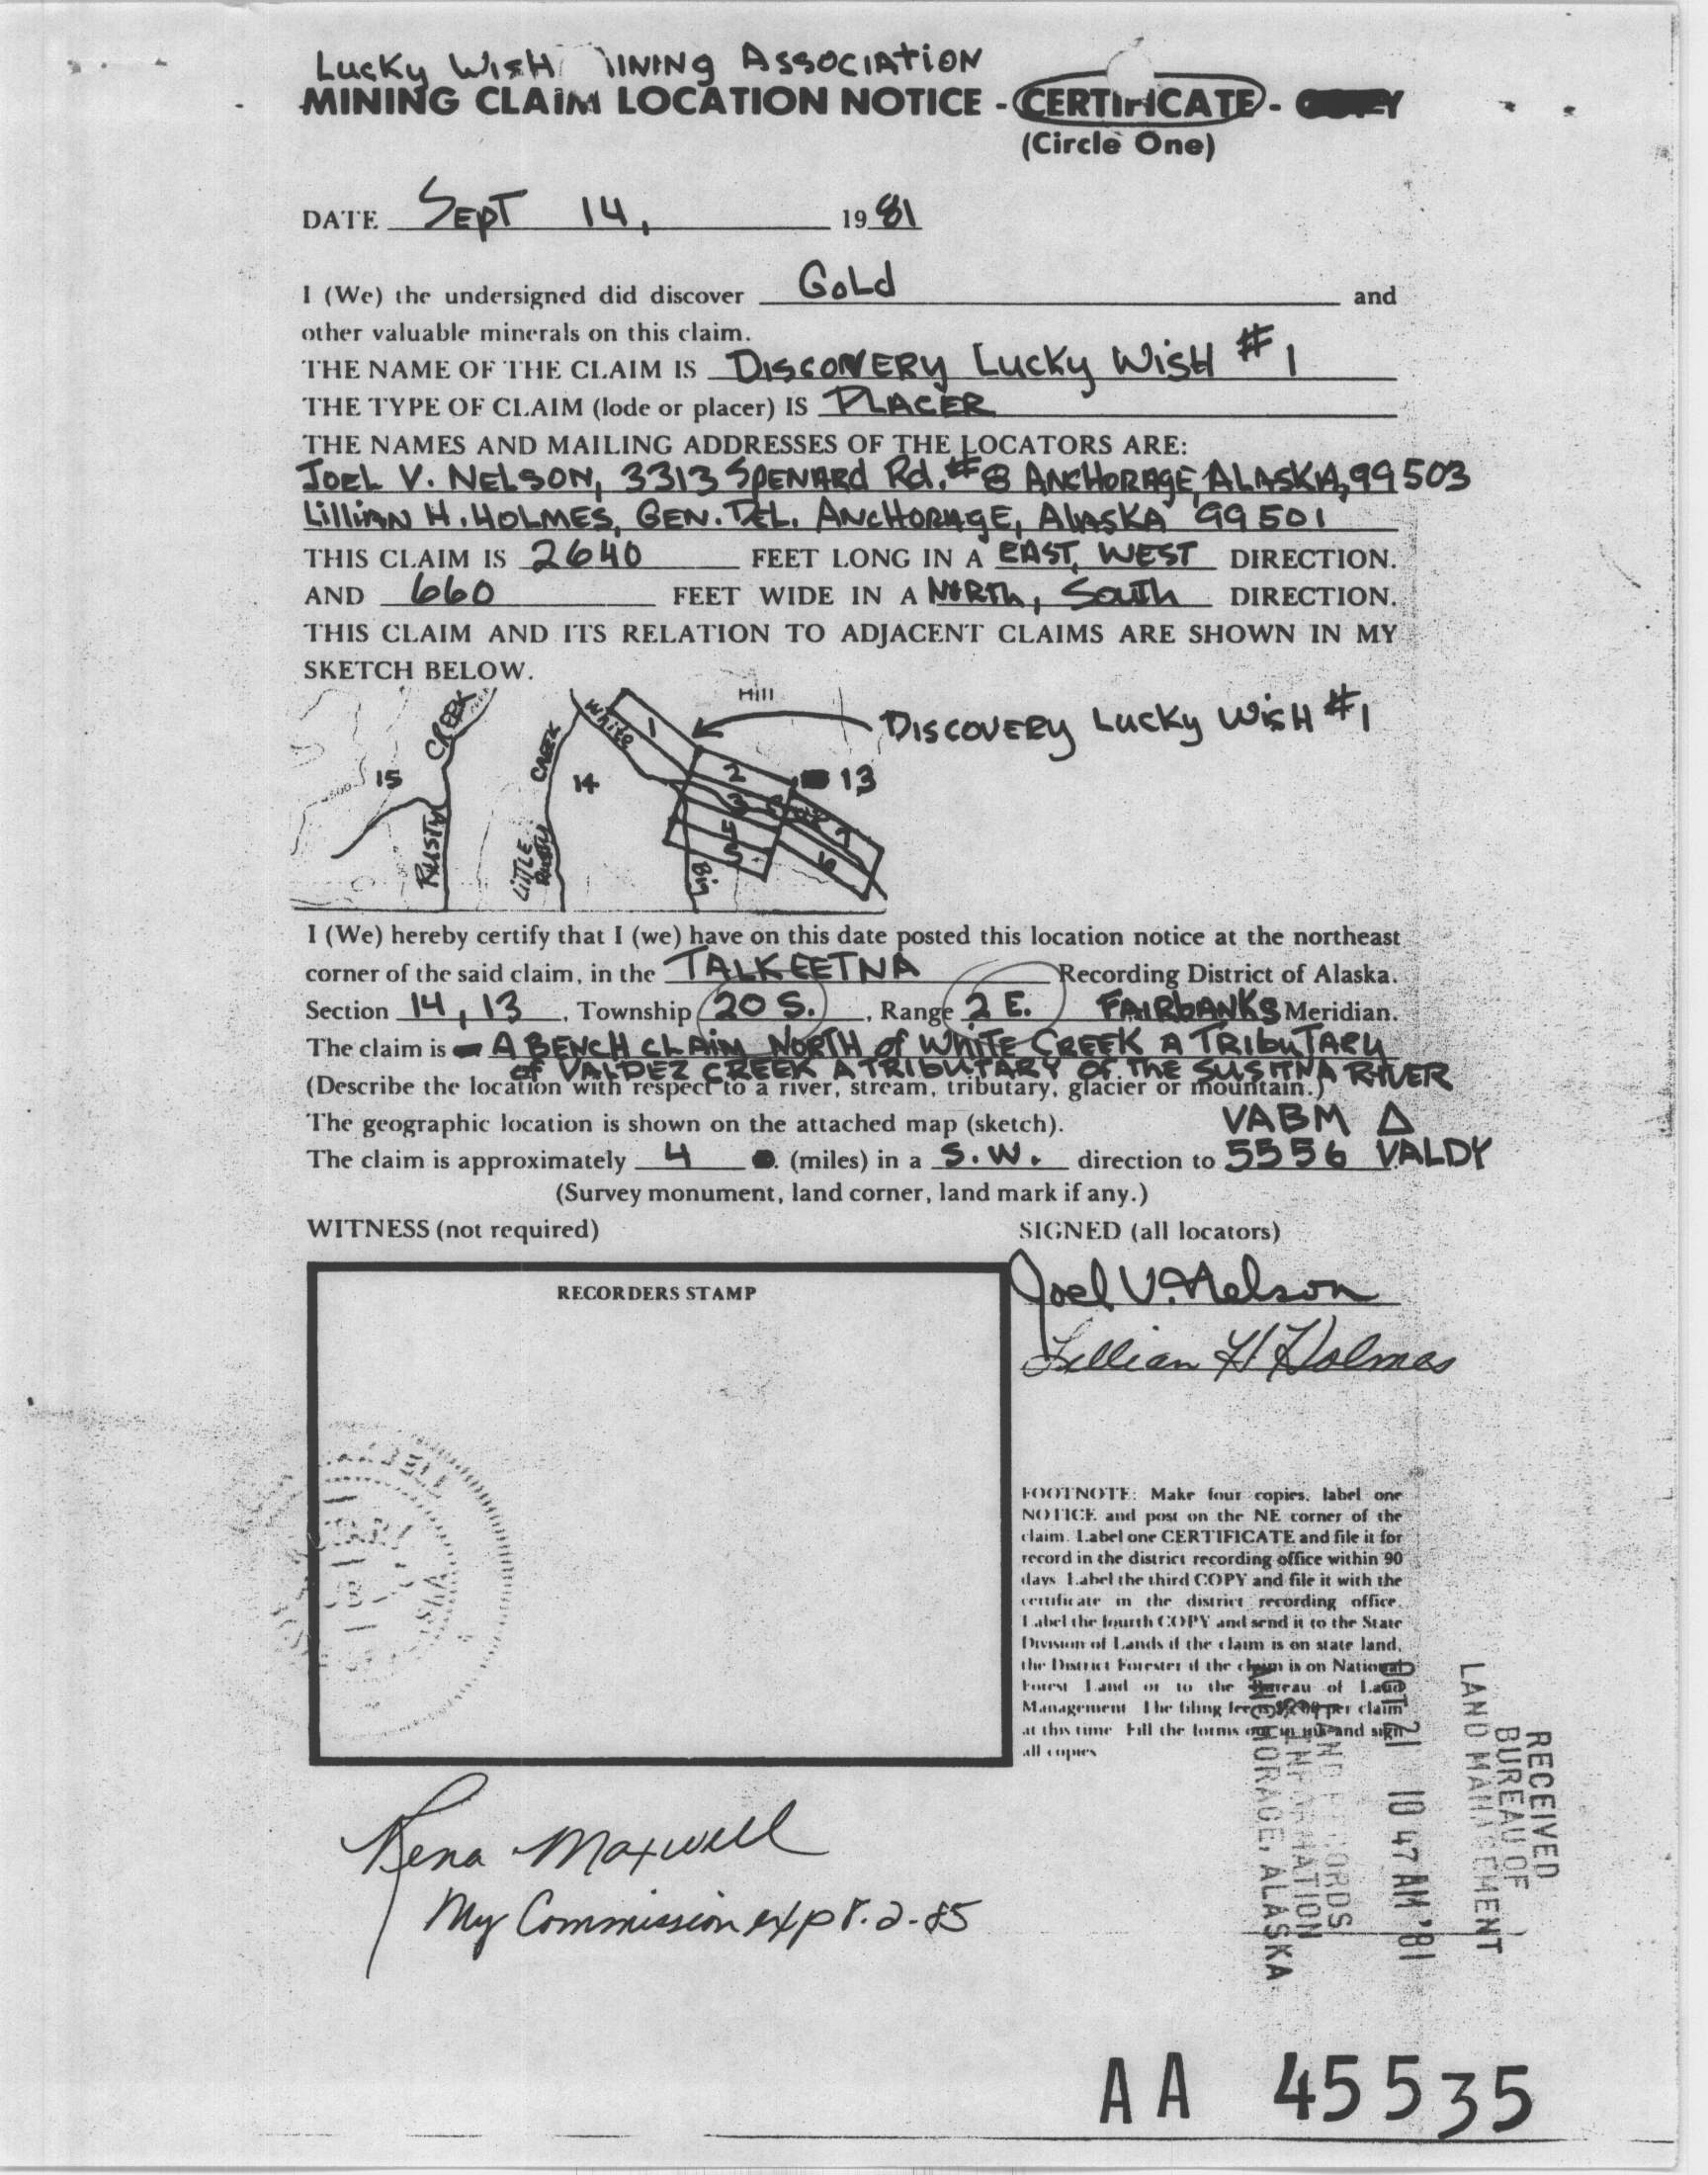 Lucky Wish MINING ASSOCIATION
MINING CLAIM LOCATION NOTICE - CERTIFICATE - COPY
(Circle One)
DATE Sept 14, 1981
I (We) the undersigned did discover Gold and
other valuable minerals on this claim.
THE NAME OF THE CLAIM IS DISCOVERY LUCKY WISH #1
THE TYPE OF CLAIM (lode or placer) IS PLACER
THE NAMES AND MAILING ADDRESSES OF THE LOCATORS ARE:
JOEL V. NELSON, 3313 SPENARD Rd. #8 ANCHORAGE, ALASKA, 99503
Lillian H. HOLMES, GEN. DEL. ANCHORAGE, ALASKA 99501
THIS CLAIM IS 2640 FEET LONG IN A EAST, WEST DIRECTION.
AND 660 FEET WIDE IN A NORTh, South DIRECTION.
THIS CLAIM AND ITS RELATION TO ADJACENT CLAIMS ARE SHOWN IN MY
SKETCH BELOW.
Hill
DISCOVERY LUCKY WISH #1
CREEK
White
1
CREEK
15
14
2
13
3
4
7
5
6
RUSTY
LITTLE RUSTY
Big
I (We) hereby certify that I (we) have on this date posted this location notice at the northeast
corner of the said claim, in the TALKEETNA Recording District of Alaska.
Section 14, 13, Township 20 S., Range 2 E. FAIRbANKS Meridian.
The claim is A BENCH CLAIM NORTH of WHITE CREEK A TRIbUTARY
of VALDEZ CREEK A TRIBUTARY OF THE SUSITNA RIVER
(Describe the location with respect to a river, stream, tributary, glacier or mountain.)
The geographic location is shown on the attached map (sketch). VABM △
The claim is approximately 4 (miles) in a S.W. direction to 5556 VALDY
(Survey monument, land corner, land mark if any.)
WITNESS (not required) SIGNED (all locators)
RECORDERS STAMP
Joel V. Nelson
Lillian H Holmes
FOOTNOTE: Make four copies, label one
NOTICE and post on the NE corner of the
claim. Label one CERTIFICATE and file it for
record in the district recording office within 90
days. Label the third COPY and file it with the
certificate in the district recording office.
Label the fourth COPY and send it to the State
Division of Lands if the claim is on state land,
the District Forester if the claim is on National
Forest Land or to the Bureau of Land
Management. The filing fee is per claim
at this time. Fill the forms out in ink and sign
all copies
RECEIVED
BUREAU OF
LAND MANAGEMENT
OCT 21 10 47 AM '81
LAND RECORDS
INFORMATION
ANCHORAGE, ALASKA
Rena Maxwell
My Commission exp 8-2-85
AA 45535